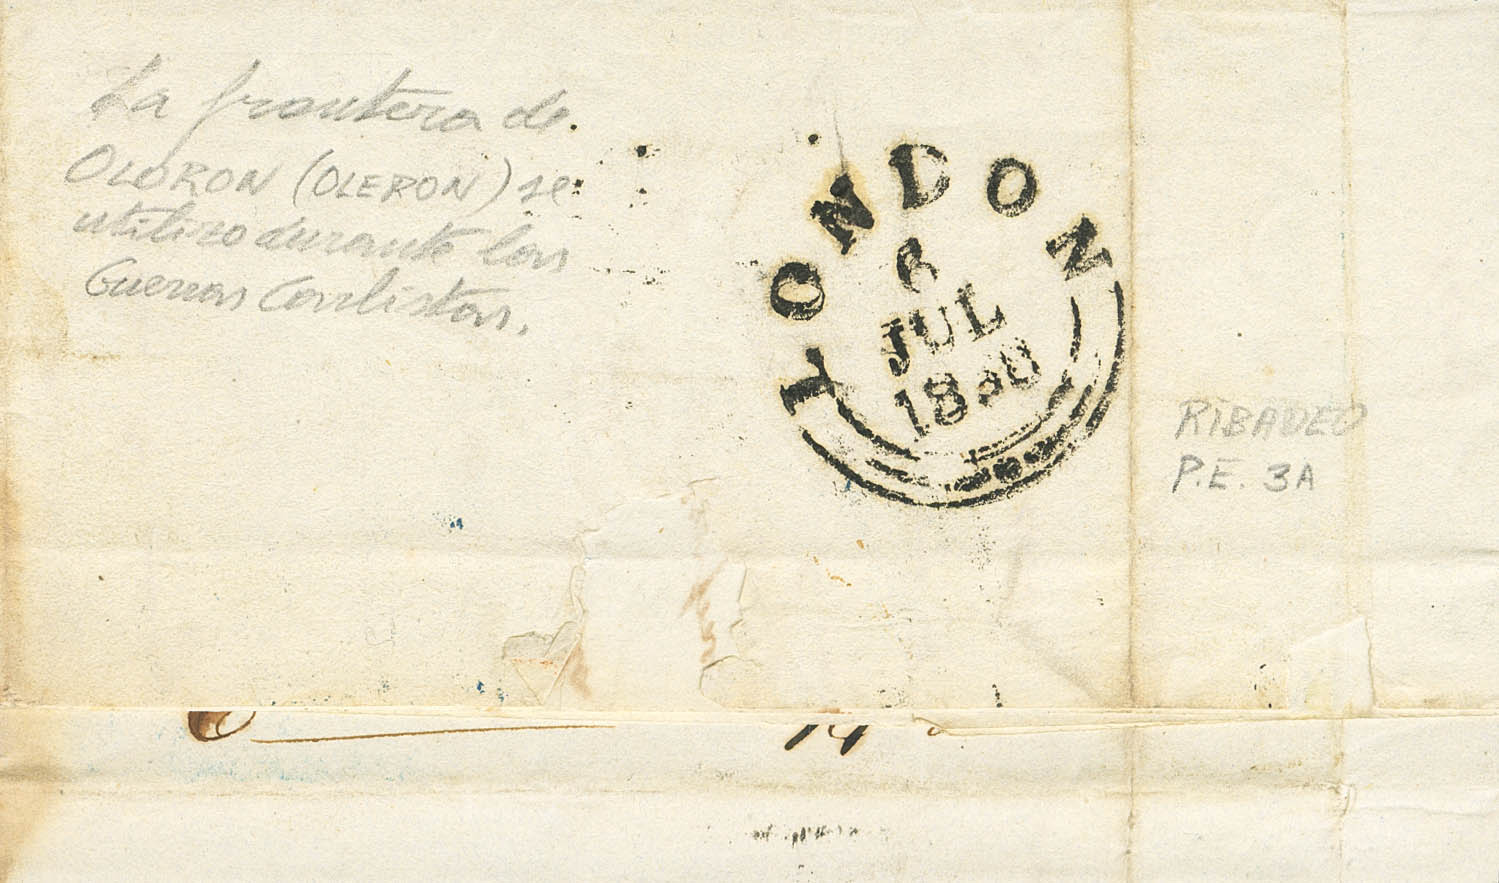 La frontera de
OLORON (OLERON) se
utilizo durante las
Guerras Carlistas.
LONDON
6
JUL
18
RIBADEO
P.E. 3A